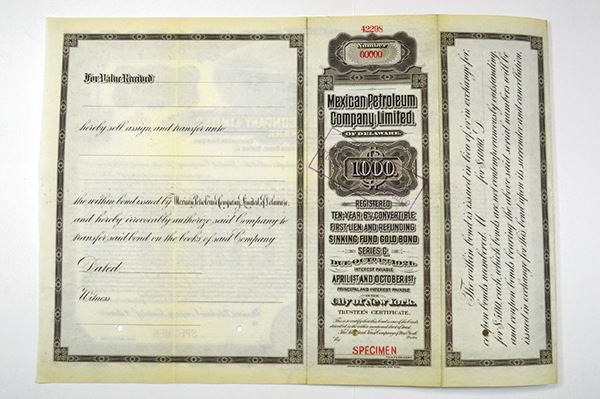 For Value Received
hereby sell, assign, and transfer unto
the within bond issued by Mexican Petroleum Company, Limited, of Delaware,
and hereby irrevocably authorize said Company to
transfer said bond on the books of said Company.
Dated
Witness
42298
Number
00000
Mexican Petroleum
Company, Limited,
OF DELAWARE.
$
1000.
REGISTERED
TEN-YEAR 6% CONVERTIBLE
FIRST LIEN AND REFUNDING
SINKING FUND GOLD BOND
SERIES C.
DUE OCT. 1ST 1921.
INTEREST PAYABLE
APRIL 1ST AND OCTOBER 1ST
PRINCIPAL AND INTEREST PAYABLE
IN THE
City of New York.
TRUSTEE'S CERTIFICATE.
This is to certify that this bond is one of the bonds
described in the within mentioned deed of trust.
By
SPECIMEN
The within bond is issued in lieu of or in exchange for
coupon bonds numbered, M for $1,000, D
for $500, each, which bonds are not contemporaneously outstanding,
and coupon bonds bearing the above said serial numbers will be
issued in exchange for this bond upon its surrender and cancellation.